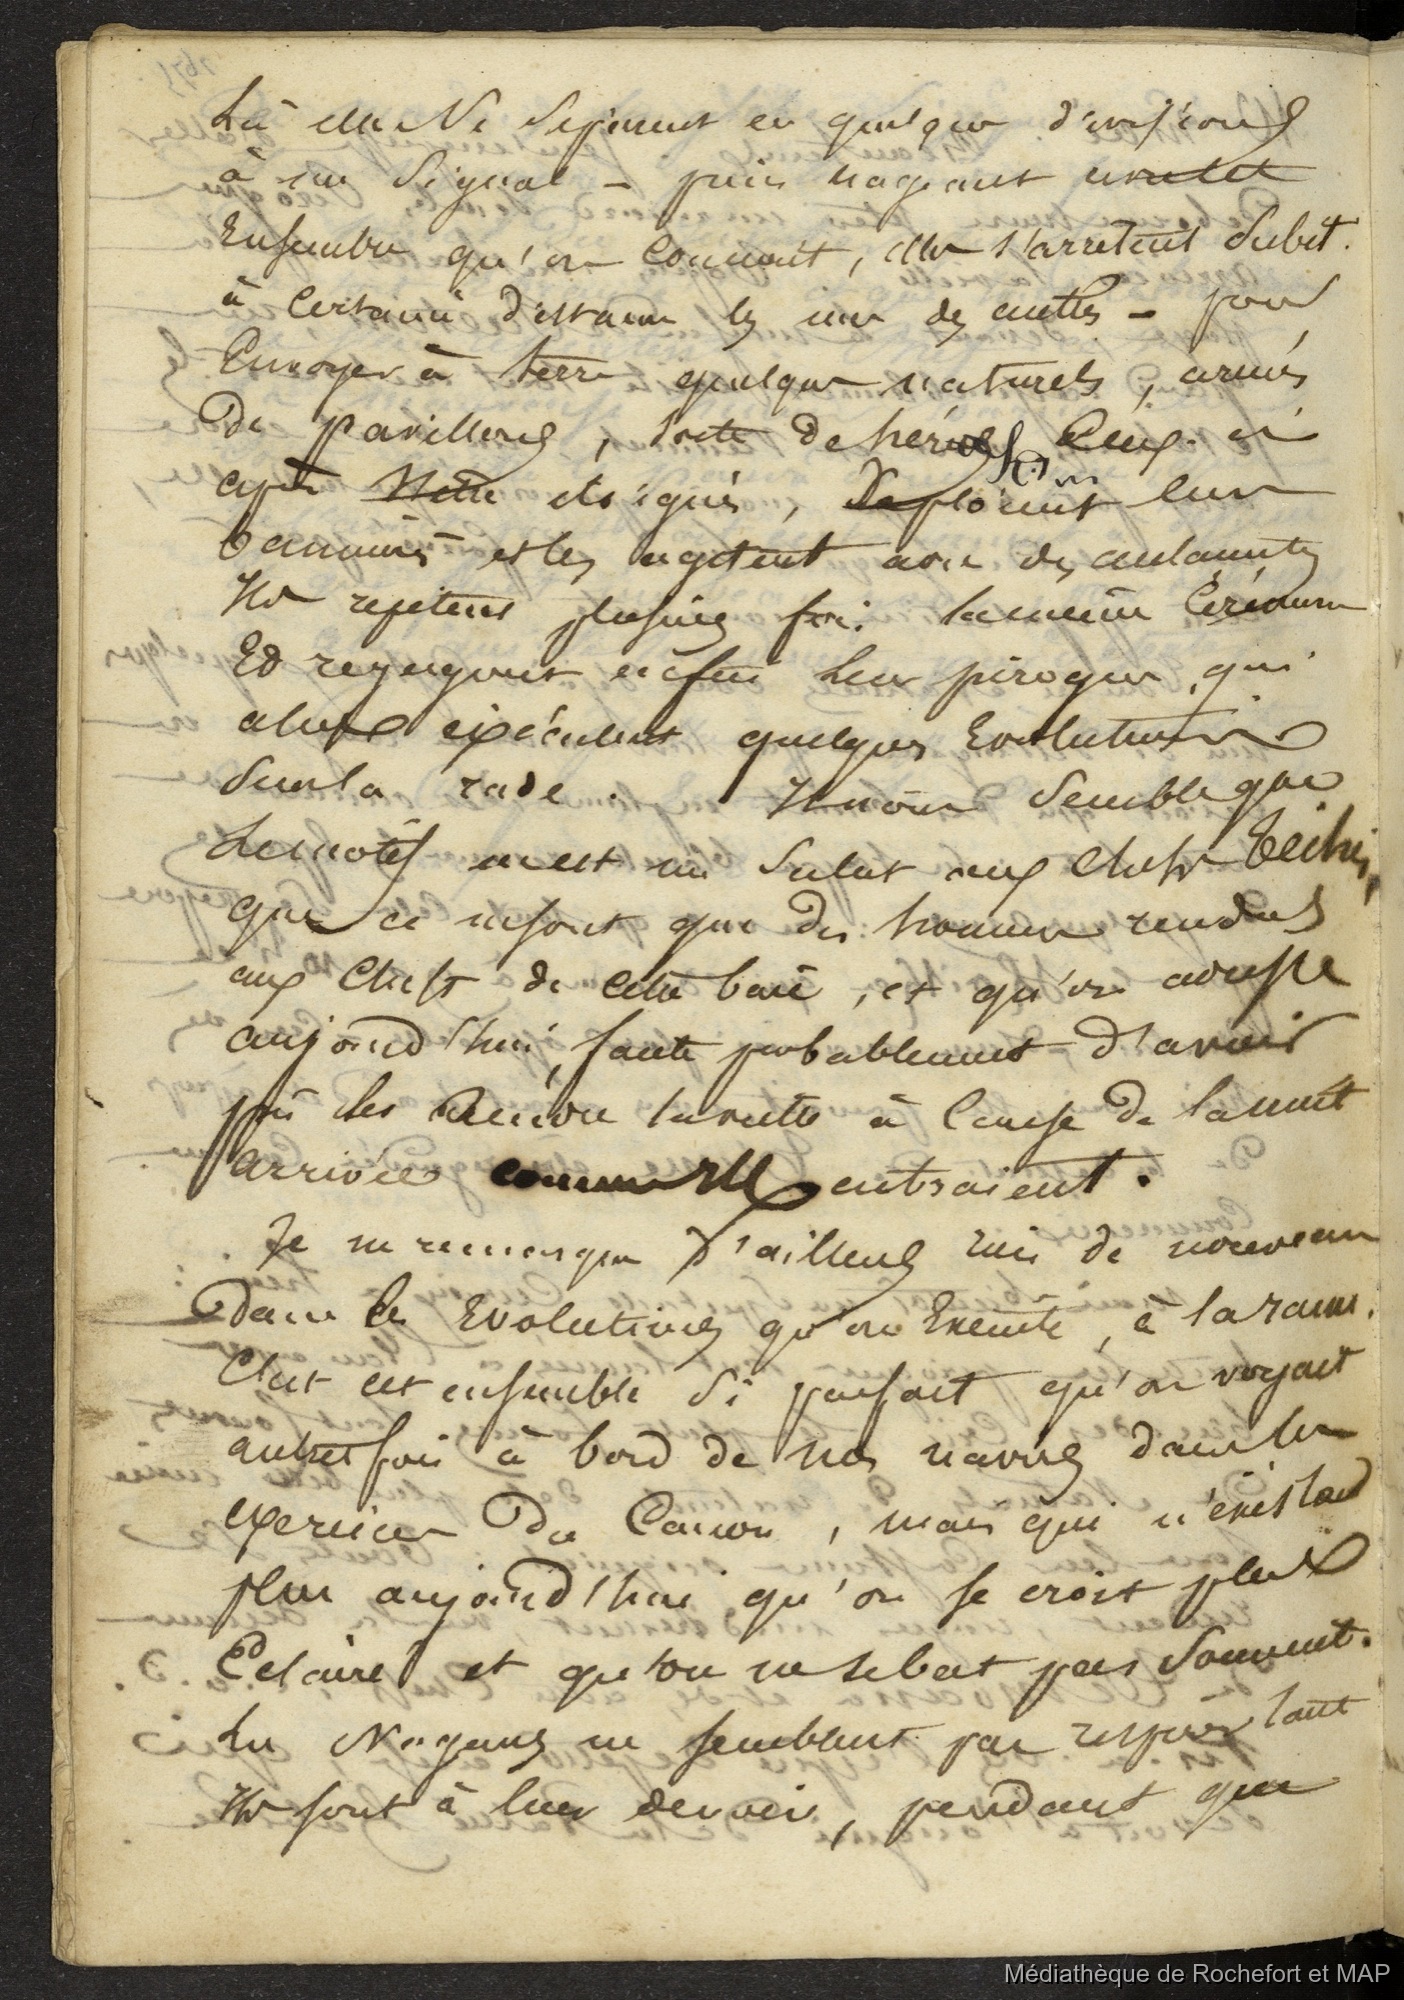 Là elle Se Séparent en quelque divisions
à un Signal – puis nageant
Ensemble qu'on connait, elle s'arretent Subit.
à certaine distance les une des auttes – pour
Envoyer à terre quelque naturels, armés
De pavillons, sorte de hérauts Ceux-ci
après s'être éloignés, Déploient leur
bannières et les agitent avec des
Ils repetent plusieurs fois la même Cérémon
Et regagnent enfin leur pirogue, qui
alors exécutent quelques Evolutions
Sur la rade. Il nous Semble que
Le motif en est un Salut aux Chefs
que ce ne sont que des honneur rendus
aux Chefs de cette baie, et qu'on adresse
aujourd'hui, faute probablement d'avoir
pû les rendre la veille à Cause De la nuit
arrivée comme Ils entraient.
Je ne remarque D'ailleurs rien de nouveau
Dans les Evolutions qu'on Exécute, à la rame.
C'est cet ensemble Si parfait qu'on voyait
autrefois à bord de nos navires dans les
exercices Du Canon, mais qui n'existent
plus aujourd'hui qu'on se croit plus
Eclairé et que l'on ne se bat pas Souvent.
Les Nageurs ne semblent pas respirer tant
Ils sont à leur devoir, pendant que
Médiathèque de Rochefort et MAP